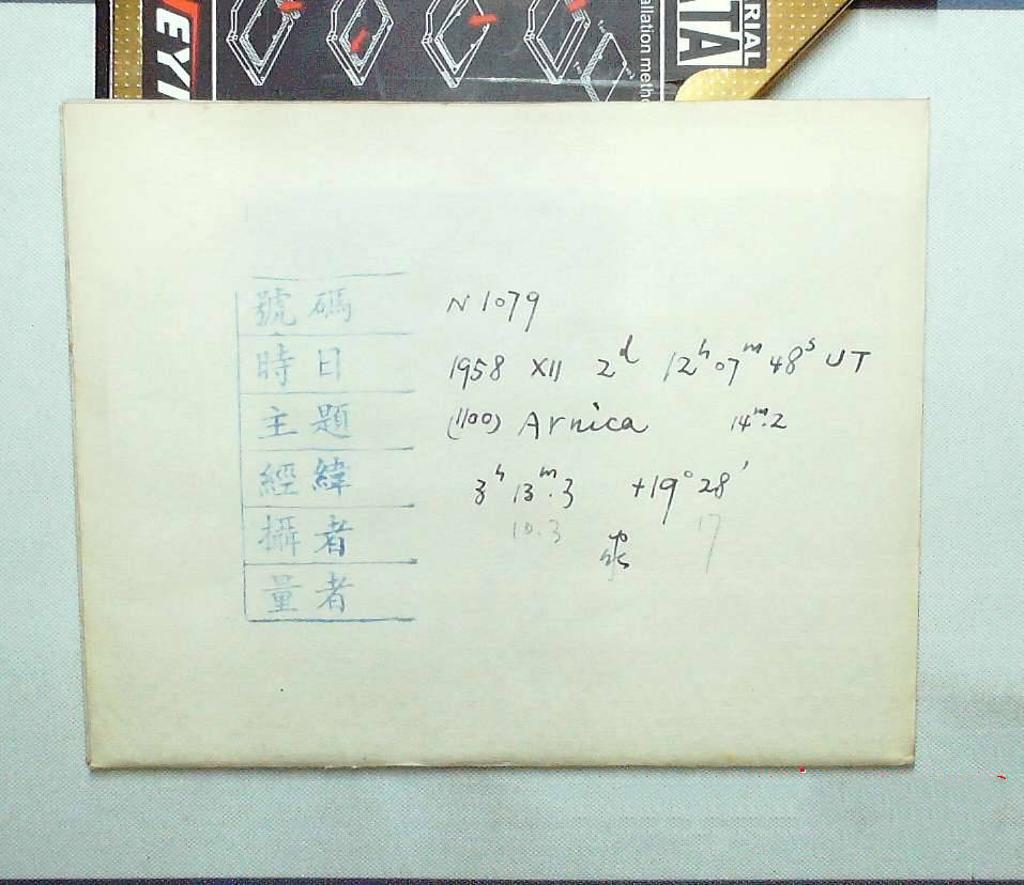 EYI
allation meth
RIAL
ATA
號碼 N 1079
時日 1958 XII 2ᵈ 12ʰ07ᵐ48ˢ UT
主題 (1100) Arnica 14ᵐ.2
經緯 3ʰ13ᵐ.3 +19°28′
10.3 17
攝者
量者